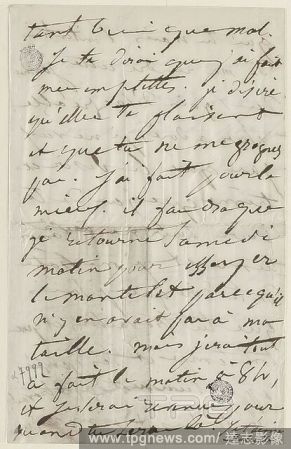 tant bien que mal.
Je te dirai que j'ai fait
mes emplettes. je désire
qu'elles te plaisent
et que tu ne me grognes
pas. J'ai fait pour le
mieux. il faudra que
je retourne Samedi
matin pour essayer
le mantelet parce qu'il
n'y en avait pas à ma
taille. mais j'irai tout
à fait le matin à 8h,
et je serai revenue pour
quand tu
17992
www.tpgnews.com 達志影像